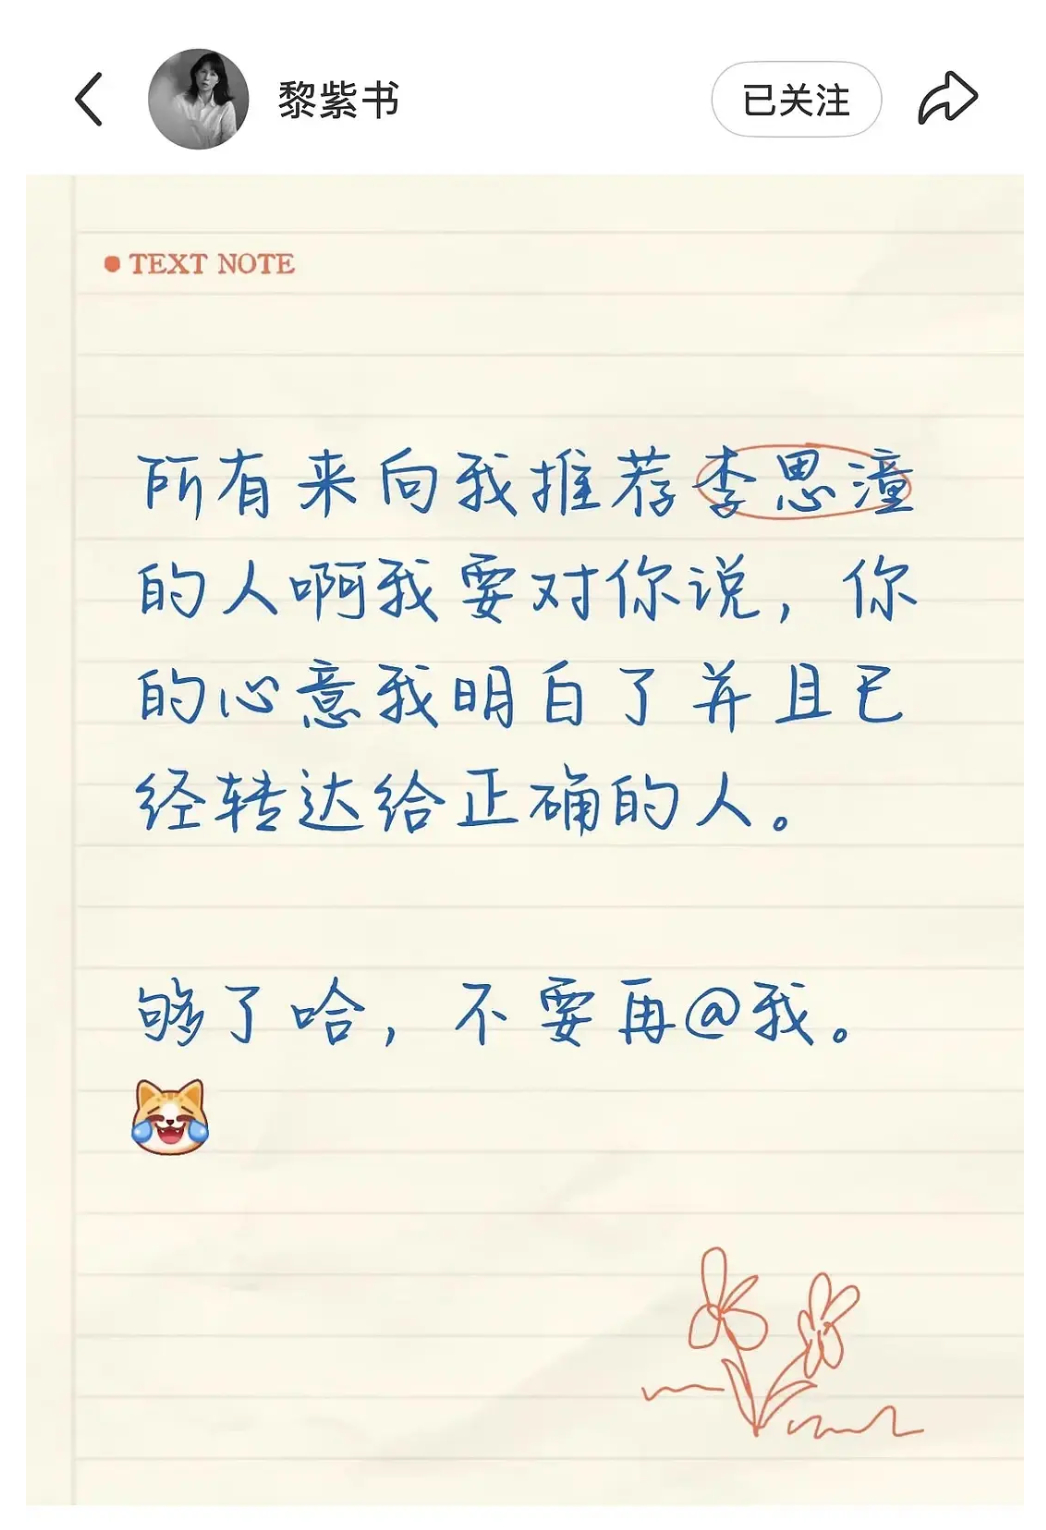 黎紫书
已关注
TEXT NOTE
所有来向我推荐李思潼
的人啊我要对你说，你
的心意我明白了并且已
经转达给正确的人。
够了哈，不要再@我。